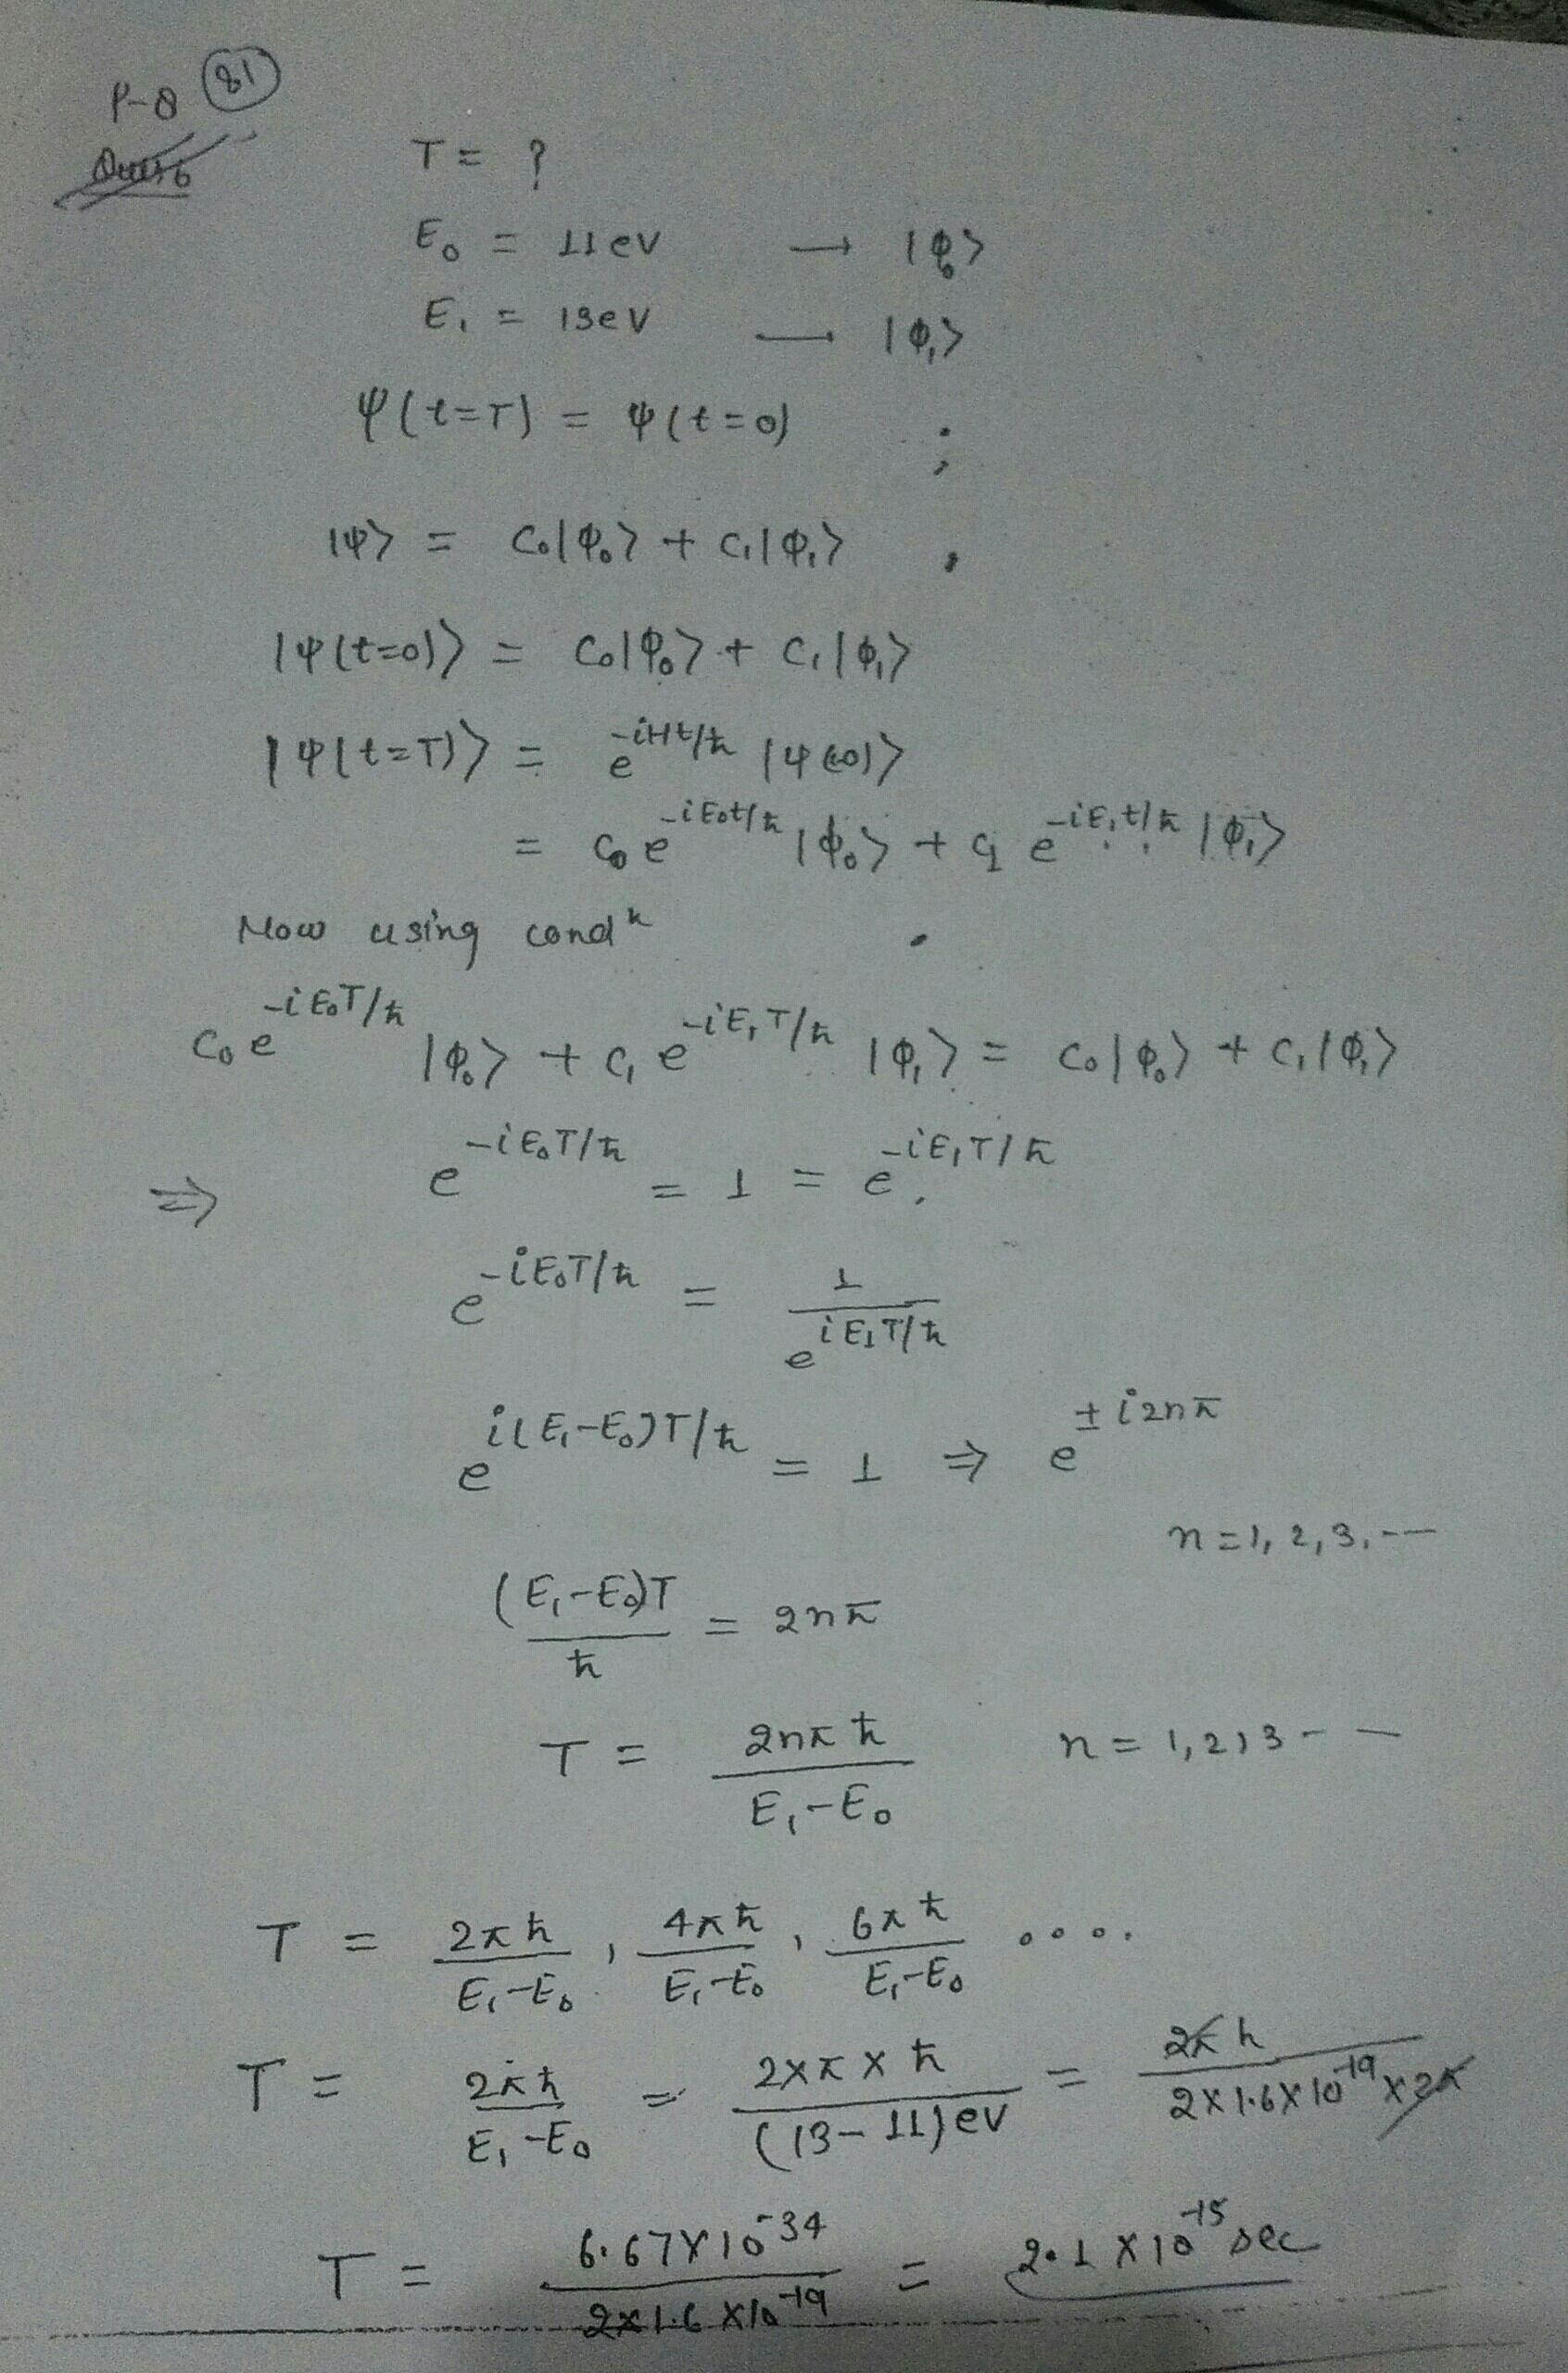 P-8 (81)
Ques 6
T = ?
E₀ = 11 eV → |φ₀⟩
E₁ = 13 eV → |φ₁⟩
ψ(t=T) = ψ(t=0) ;
|ψ⟩ = C₀|φ₀⟩ + C₁|φ₁⟩ ,
|ψ(t=0)⟩ = C₀|φ₀⟩ + C₁|φ₁⟩
|ψ(t=T)⟩ = e^{-iHt/ħ} |ψ(t=0)⟩
= C₀ e^{-iE₀t/ħ} |φ₀⟩ + C₁ e^{-iE₁t/ħ} |φ₁⟩
Now using condⁿ
C₀ e^{-iE₀T/ħ} |φ₀⟩ + C₁ e^{-iE₁T/ħ} |φ₁⟩ = C₀|φ₀⟩ + C₁|φ₁⟩
⇒ e^{-iE₀T/ħ} = 1 = e^{-iE₁T/ħ}
e^{-iE₀T/ħ} = 1 / e^{iE₁T/ħ}
e^{i(E₁-E₀)T/ħ} = 1 ⇒ e^{±i2nπ}
n = 1, 2, 3, --
(E₁-E₀)T / ħ = 2nπ
T = 2nπħ / E₁-E₀ n = 1, 2, 3 - -
T = 2πħ / E₁-E₀ , 4πħ / E₁-E₀ , 6πħ / E₁-E₀ ....
T = 2πħ / E₁-E₀ = 2×π×ħ / (13-11) eV = 2πh / 2×1.6×10^{-19}×2π
T = 6.67×10^{-34} / 2×1.6×10^{-19} = 2.1 × 10^{-15} sec